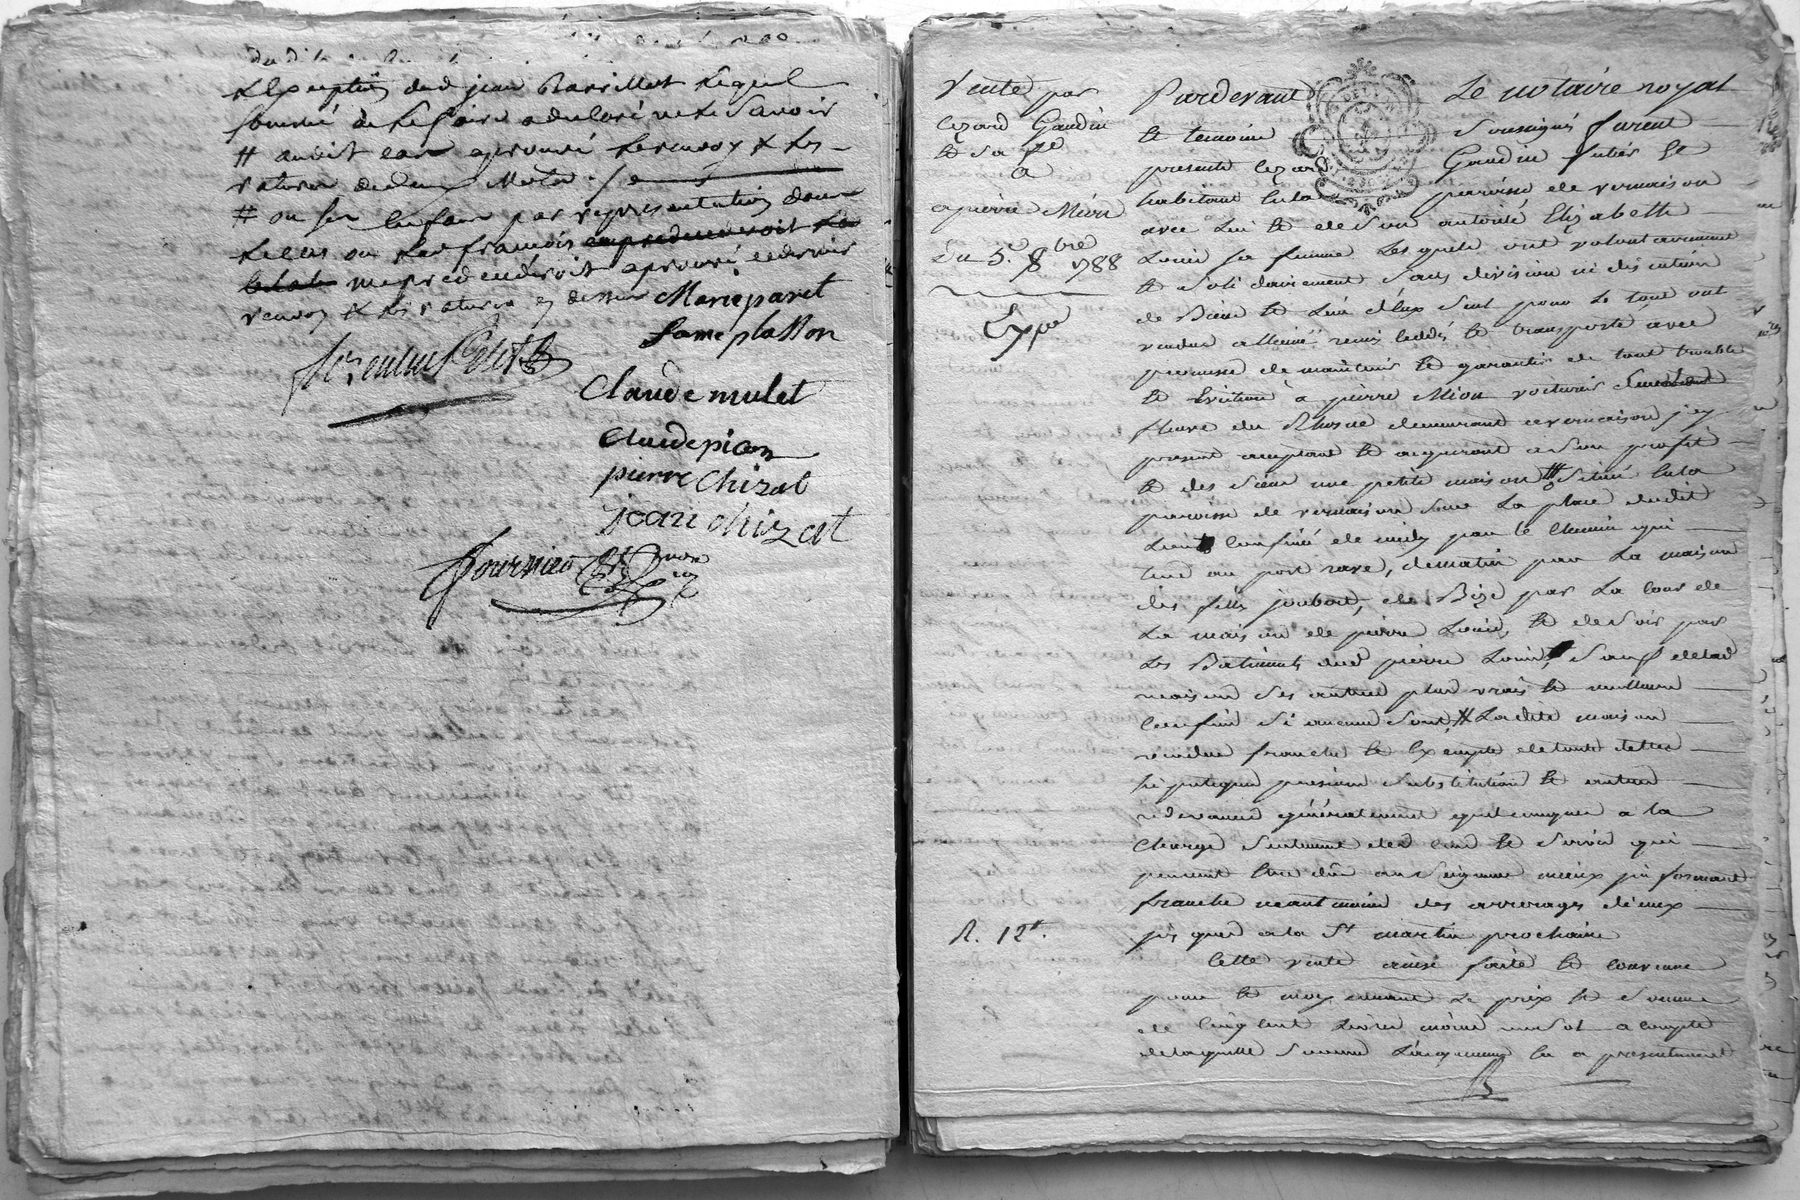 L'exception dud jean Barillot Lequel
sommé de le faire a declaré ne le Savoir
# audit cas aprouvé le renvoy & les
ratures de deux Mots
# ou ses Enfans par representation dans
le cas ou led francois
mepredecederoit aprouvé ce dernier
renvoy & les ratures cy dessus Marie paret
Same plasson
Claude mulet
Claude pion
pierre Chizat
jean chizat
fournier
Vente par
Cezard Gaudin
et sa fe
a
a pierre Mion
Du 5. 8bre 1788
Expé
R. 12t.
Pardevant Le notaire royal
et temoins Soussignés furent
presents Cezard Gaudin
habitant en la paroisse de vernaison
avec Lui et de Son autorité Elizabeth
Louis sa femme Lesquels ont volontairement
et Solidairement Sans division ni discution
de Biens et L'un d'Eux Seul pour Le tout ont
vendu remis Ceddé et transporté avec
promesse de maintenir et garantir de tout trouble
et Eviction à pierre Mion voiturier
fleuve du Rhosne demeurant a vernaison icy
present acceptant et acquerant a Son profit
et des Siens une petite maison Située en la
paroisse de vernaison Sur La place dudit
Lieu Confinée de midy par le Chemin qui
tend au port rave, de matin par La maison
des filles joubert, de Bize par La Cour de
La maison de pierre Louis, et de Soir par
Les Batiments dud pierre Louis, Sauf de lad
maison Ses autres plus vrais et meilleurs
Confins Si aucuns Sont # Ladite maison
vendue franche et Exempte de toute dettes
hipoteques pensions Substitution et autres
redevances généralement quelconques a la
Charge Seulement des Cens et Servis qui
peuvent Etre dûs au Seigneur
franche neantmoins des arrerages d'iceux
jusques a la St martin prochaine
Cette vente ainsi faite et Convenue
pour et moyennant Le prix et Somme
de Cinq Cent Livres moins un Sol a compte
de laquelle Somme L'acquereur en a presentement